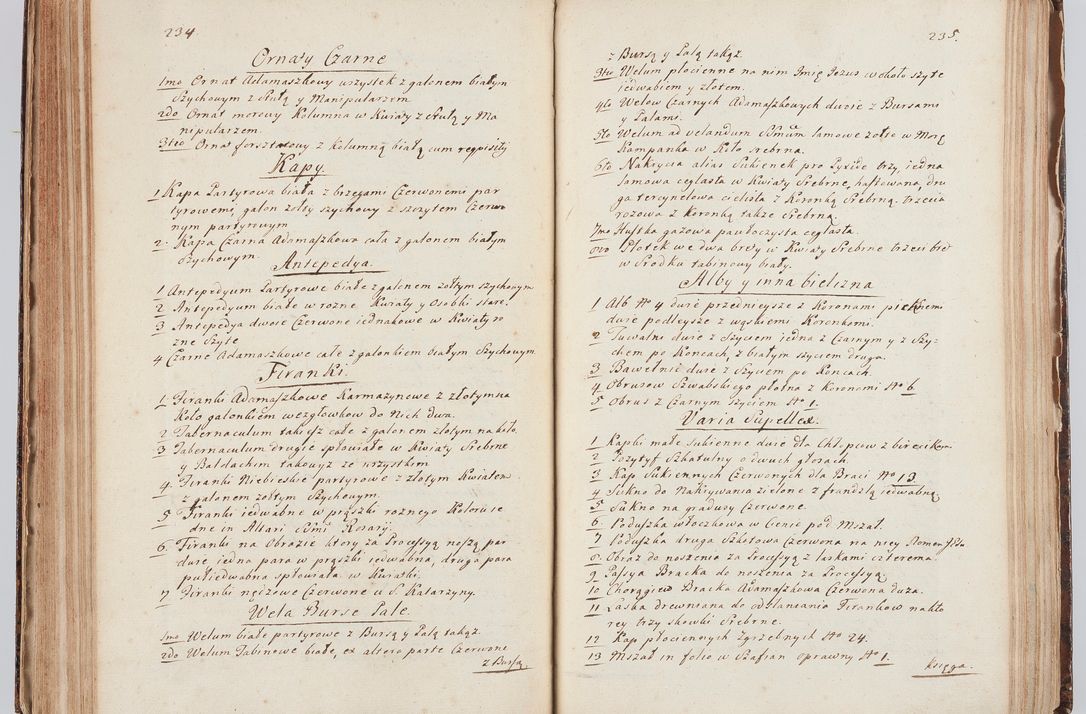 234.
Ornaty Czarne
1mo Ornat Adamaszkowy wszystek z galonem białym
Szychowym z Stułą y Manipularzem
2do Ornat morowy Kolumna w Kwiaty z Stułą y Ma
nipularzem.
3tio Ornat forsztatowy z Kolumną białą cum reqvisitis
Kapy.
1 Kapa Partyrowa biała z brzegami Czerwonemi par
tyrowemi, galon żołty szychowy z szczytem Czerwo
nym partyrowym
2. Kapa Czarna Adamaszkowa cała z galonem białym
Szychowym.
Antepedya.
1 Antepedyum Partyrowe białe z galonem żołtym szychowym
2 Antepedyum białe w rożne Kwiaty y Osobki stare.
3 Antepedya dwoie Czerwone iednakowe w Kwiaty ro
żne Szyte
4 Czarne Adamaszkowe całe z galonkiem białym Szychowym.
Firanki.
1 Firanki Adamaszkowe Karmazynowe z złotym na
Koło galonkiem wezgłowkow do Nich dwa.
2 Tabernaculum takiesz całe z galonem złotym na koło.
3 Tabernaculum drugie spłowiałe w Kwiaty Srebrne
y Baldachim takowyz ze wszystkim
4. Firanki Niebieskie partyrowe z złotym Kwiatem
z galonem żołtym Szychowym.
5 Firanki iedwabne w prążki rożnego Koloru ie
dne in Altari SSmi Rosarij.
6. Firanki na Obrazie ktory za Processyą noszą par
dwie iedna para w prążki iedwabna, druga para
pułiedwabna spłowiała w Kwiatki.
7 Firanki nędzowe Czerwone u S. Katarzyny.
Wela Burse Pale.
1mo Welum białe partyrowe z Bursą y Palą takąż.
2do Welum Tabinowe białe, ex altera parte Czerwone
z Bursą
235.
z Bursą y Palą takąż.
3tio Welum płocienne na nim Imię Jezus w około szyte
iedwabiem y złotem.
4to Welow Czarnych Adamaszkowych dwoie z Bursami
y Palami.
5to Welum ad velandum SSmum lamowe żołte w Morę
Kampanka w Koło srebrna.
6to Nakrycia alias Sukienek pro Pyxide trzy, iedna
lamowa ceglasta w Kwiaty Srebrne, haftowana, dru
ga tercynelowa cielista z Koronką Srebrną. trzecia
rożowa z Koronką także Srebrną.
7mo Hustka gazowa ceglasta.
8vo Płotek we dwa brety w Kwiaty Srebrne trzeci bret
w Srodku tabinowy biały.
Alby y inna bielizna
1 Alb No 4 dwie przednieysze z Koronami pieknemi
dwie podleysze z wąskiemi Koronkami.
2 Tuwalni dwie z Szyciem iedna z Czarnym y z Szy-
chem po Koncach, z białym szyciem druga.
3 Bawełnic dwie z Szyciem po Koncach.
4. Obrusow Szwabskiego płotna z Koronami No 6
5 Obrus z Czarnym Szyciem No 1.
Varia Supellex.
1 Kapki małe Sukienne dwie dla Chłopcow z
2 Pozytyf Szkatulny o dwuch głosach.
3 Kap Sukiennych Czerwonych dla Braci No 13.
4 Sukno do Nakrywania zielone z frandzlą iedwabną
5 Sukno na gradusy Czerwone.
6 Poduszka włoczkowa w Cienie pod Mszał.
7 Poduszka druga Szkotowa Czerwona na niey Nomen Jesu
8 Obraz do noszenia za Processyą z laskami czterema
9 Passya Bracka do noszenia za Processyą
10 Chorągiew Bracka Adamaszkowa Czerwona duża.
11 Laska drewniana do odsłaniania Firankow na kto
rey trzy skowki Srebrne.
12 Kap płociennych Zgrzebnych No 24.
13 Mszał in folio w Szafian oprawny No 1.
Księga.